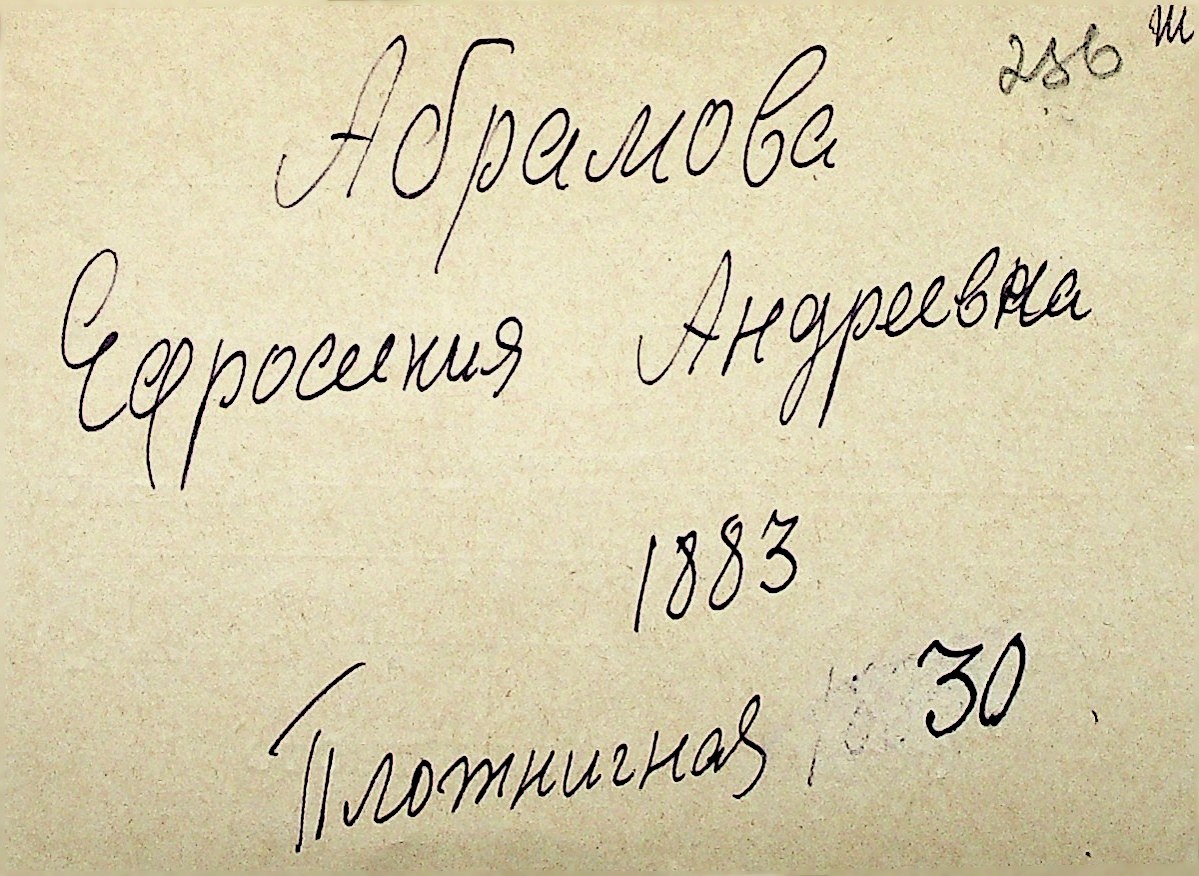 286 Ш
Абрамова
Ефросиния Андреевна
1883
Плотничная 30